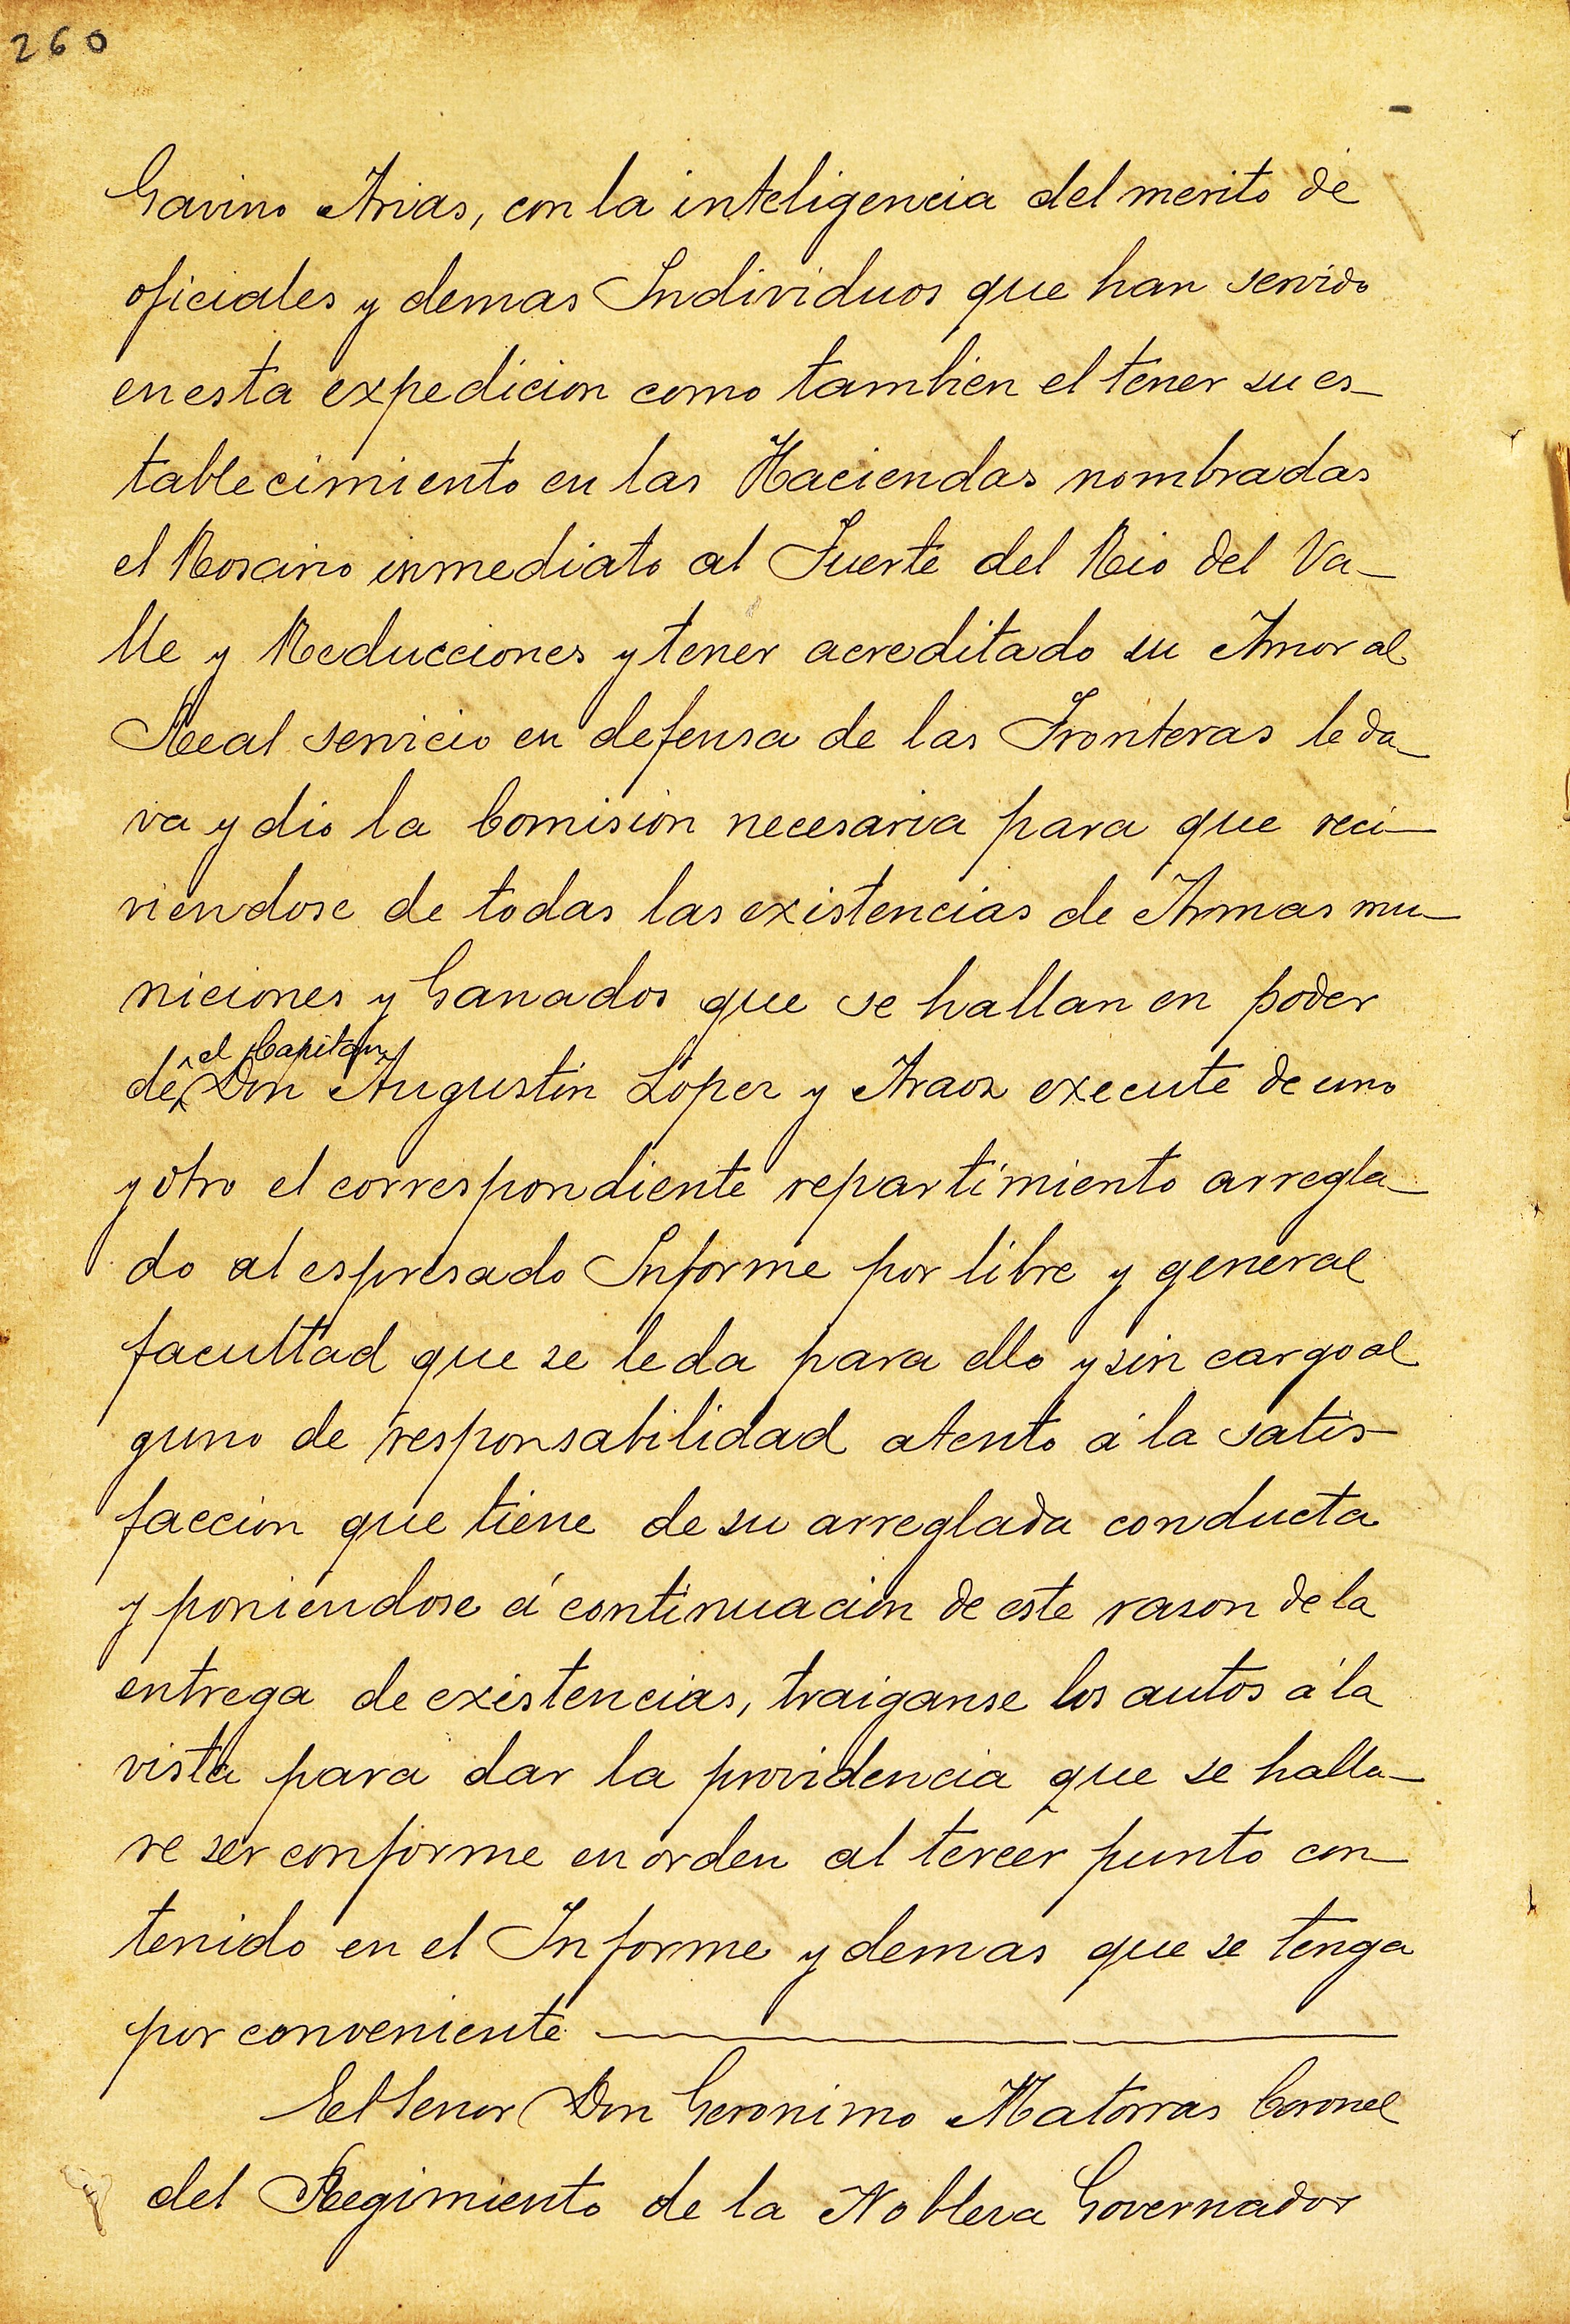 260
Gavino Arias, con la inteligencia del merito de
oficiales y demas Individuos que han servido
en esta expedicion como tambien el tener su es-
tablecimiento en las Haciendas nombradas
el Rosario inmediato al Fuerte del Rio del Va-
lle y Reducciones y tener acreditado su Amor al
Real servicio en defensa de las Fronteras le da-
va y dio la Comision necesaria para que reci-
viendose de todas las existencias de Armas mu-
niciones y Ganados que se hallan en poder
el Capitan
de Don Augustin Lopez y Araoz execute de uno
y otro el correspondiente repartimiento arregla-
do al espresado Informe por libre y general
facultad que se le da para ello y sin cargo al
guno de responsabilidad atento á la satis-
faccion que tiene de su arreglada conducta
y poniendose á continuacion de este razon de la
entrega de existencias, traiganse los autos á la
vista para dar la providencia que se halla-
re ser conforme en orden al tercer punto con-
tenido en el Informe y demas que se tenga
por conveniente
El Senor Don Geronimo Matorras Coronel
del Regimiento de la Nobleza Governador